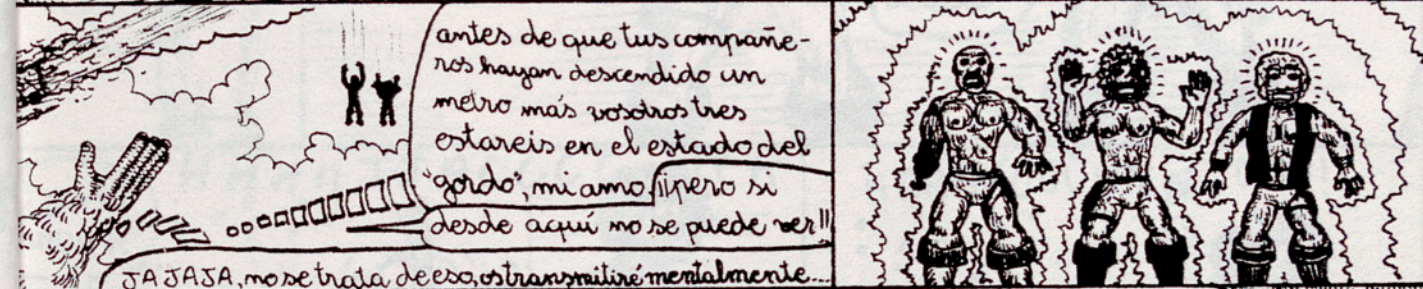 antes de que tus compañe-
ros hayan descendido un
metro más vosotros tres
estareis en el estado del
"gordo", mi amo ¡¡pero si
desde aquí no se puede ver!!
JAJAJA, no se trata de eso, os transmitiré mentalmente...